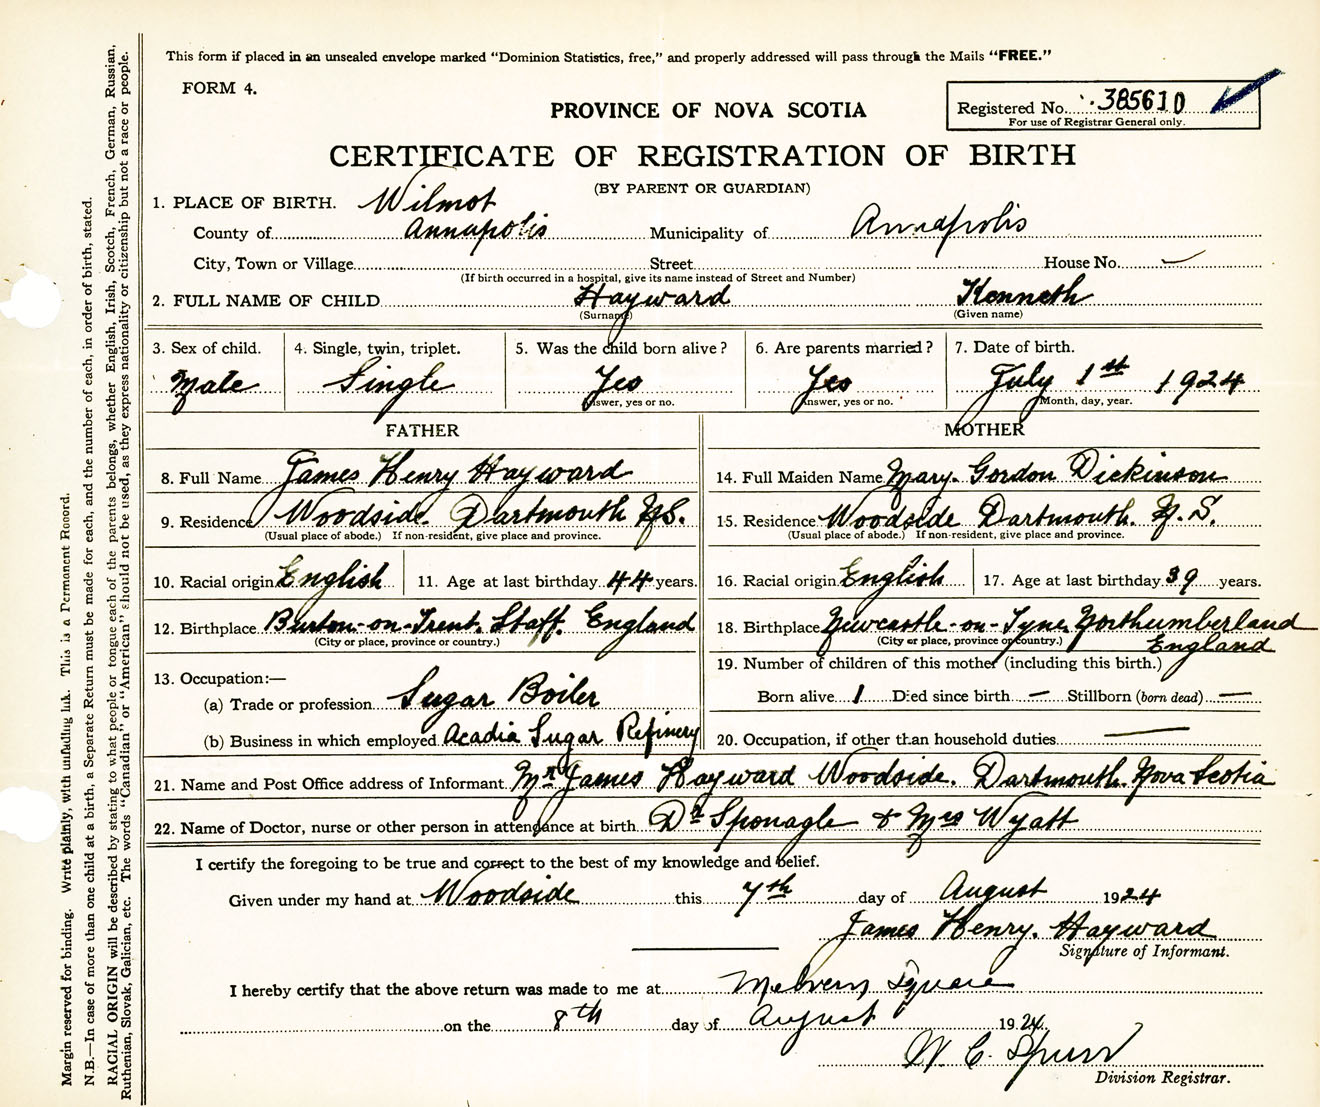 This form if placed in an unsealed envelope marked “Dominion Statistics, free,” and properly addressed will pass through the Mails “FREE.”
FORM 4.
Registered No. 385610
For use of Registrar General only.
PROVINCE OF NOVA SCOTIA
CERTIFICATE OF REGISTRATION OF BIRTH
(BY PARENT OR GUARDIAN)
1. PLACE OF BIRTH. Wilmot
County of Annapolis Municipality of Annapolis
City, Town or Village Street House No. —
(If birth occurred in a hospital, give its name instead of Street and Number)
2. FULL NAME OF CHILD Hayward Kenneth
(Surname) (Given name)
3. Sex of child. 4. Single, twin, triplet. 5. Was the child born alive? 6. Are parents married? 7. Date of birth.
Male Single Yes Yes July 1st 1924
Answer, yes or no. Answer, yes or no. Month, day, year.
FATHER
8. Full Name James Henry Hayward
9. Residence Woodside. Dartmouth N.S.
(Usual place of abode.) If non-resident, give place and province.
10. Racial origin English 11. Age at last birthday 44 years.
12. Birthplace Burton-on-Trent. Staff. England
(City or place, province or country.)
13. Occupation:—
(a) Trade or profession Sugar Boiler
(b) Business in which employed Acadia Sugar Refinery
MOTHER
14. Full Maiden Name Mary. Gordon Dickinson
15. Residence Woodside Dartmouth. N.S.
(Usual place of abode.) If non-resident, give place and province.
16. Racial origin English 17. Age at last birthday 39 years.
18. Birthplace Newcastle-on-Tyne Northumberland
(City or place, province or country.) England
19. Number of children of this mother (including this birth.)
Born alive 1 Died since birth — Stillborn (born dead) —
20. Occupation, if other than household duties —
21. Name and Post Office address of Informant Mr James Hayward Woodside. Dartmouth. Nova Scotia
22. Name of Doctor, nurse or other person in attendance at birth Dr Sponagle & Mrs Wyatt
I certify the foregoing to be true and correct to the best of my knowledge and belief.
Given under my hand at Woodside this 7th day of August 1924
James Henry. Hayward
Signature of Informant.
I hereby certify that the above return was made to me at Melvern Square
on the 8th day of August 1924
W. C. Spurr
Division Registrar.
Margin reserved for binding. Write plainly, with unfading ink. This is a Permanent Record.
N.B.—In case of more than one child at a birth, a Separate Return must be made for each, and the number of each, in order of birth, stated.
RACIAL ORIGIN will be described by stating to what people or tongue each of the parents belongs, whether English, Irish, Scotch, French, German, Russian,
Ruthenian, Slovak, Galician, etc. The words “Canadian” or “American” should not be used, as they express nationality or citizenship but not a race or people.